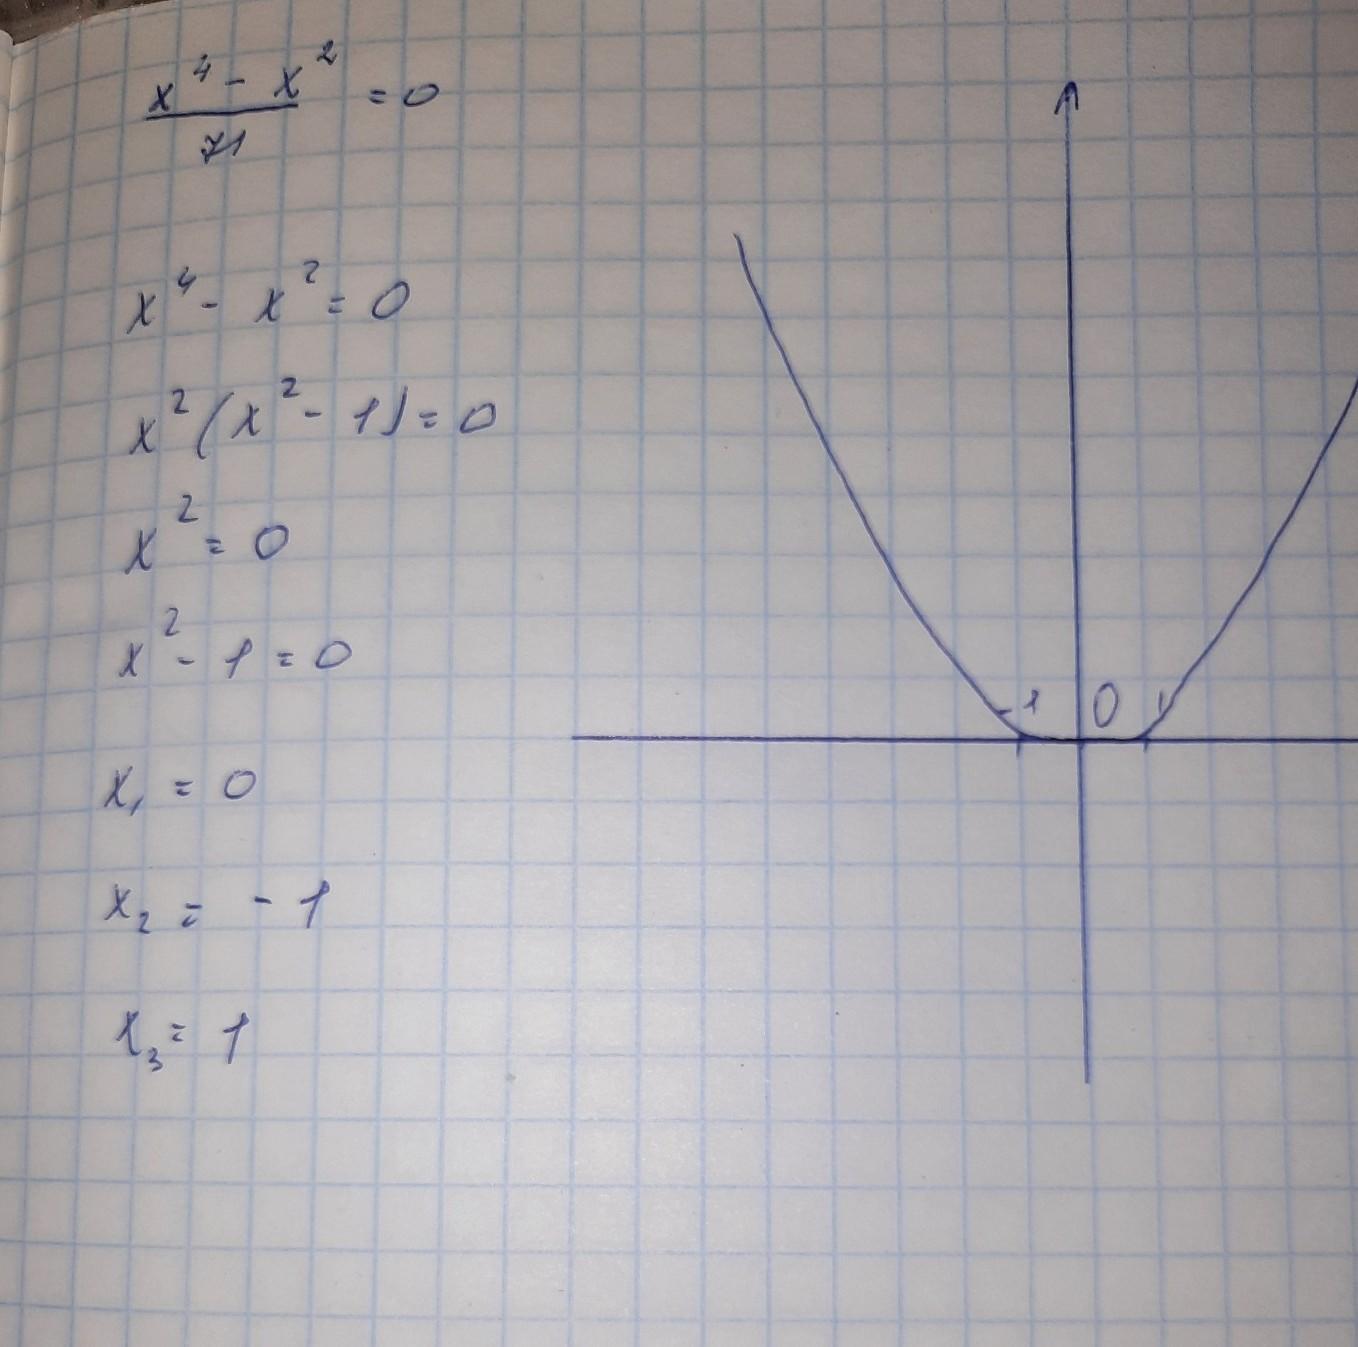 x⁴ - x² / 71 = 0
x⁴ - x² = 0
x² (x² - 1) = 0
x² = 0
x² - 1 = 0
x₁ = 0
x₂ = - 1
x₃ = 1
-1 0 1